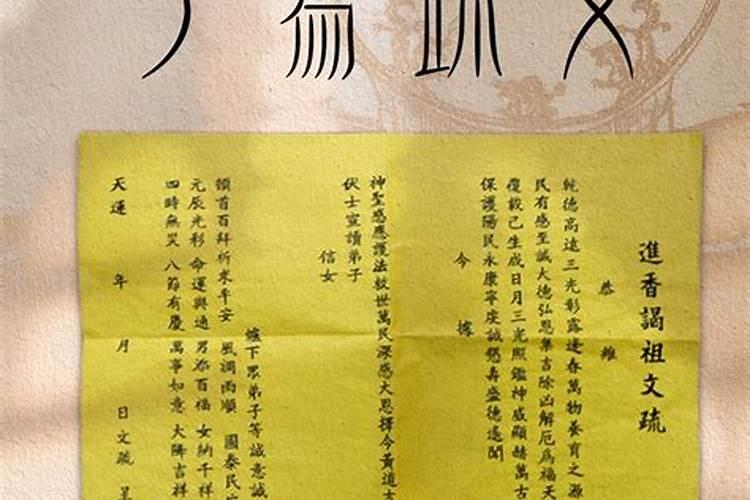 疏文
進香謁祖文疏
恭維
乾德高遠三光彰露逢春萬物養育之源
民有感至誠大德弘恩集吉除凶解厄爲福天
覆載己生成日月三光照鑑神威顯赫萬古
保護陽民永康寧虔誠懇壽盛德遙聞
今據
神聖感應護法救世萬民深感大恩擇今黃道吉
伏士宣讀弟子
信女
爐下眾弟子等誠意誠
頓首百拜祈求平安 風調雨順 國泰民
元辰光彩 命運興通 男添百福 女納千祥
四時無災 八節有慶 萬事如意 大降吉祥
天運 年 月 日文疏